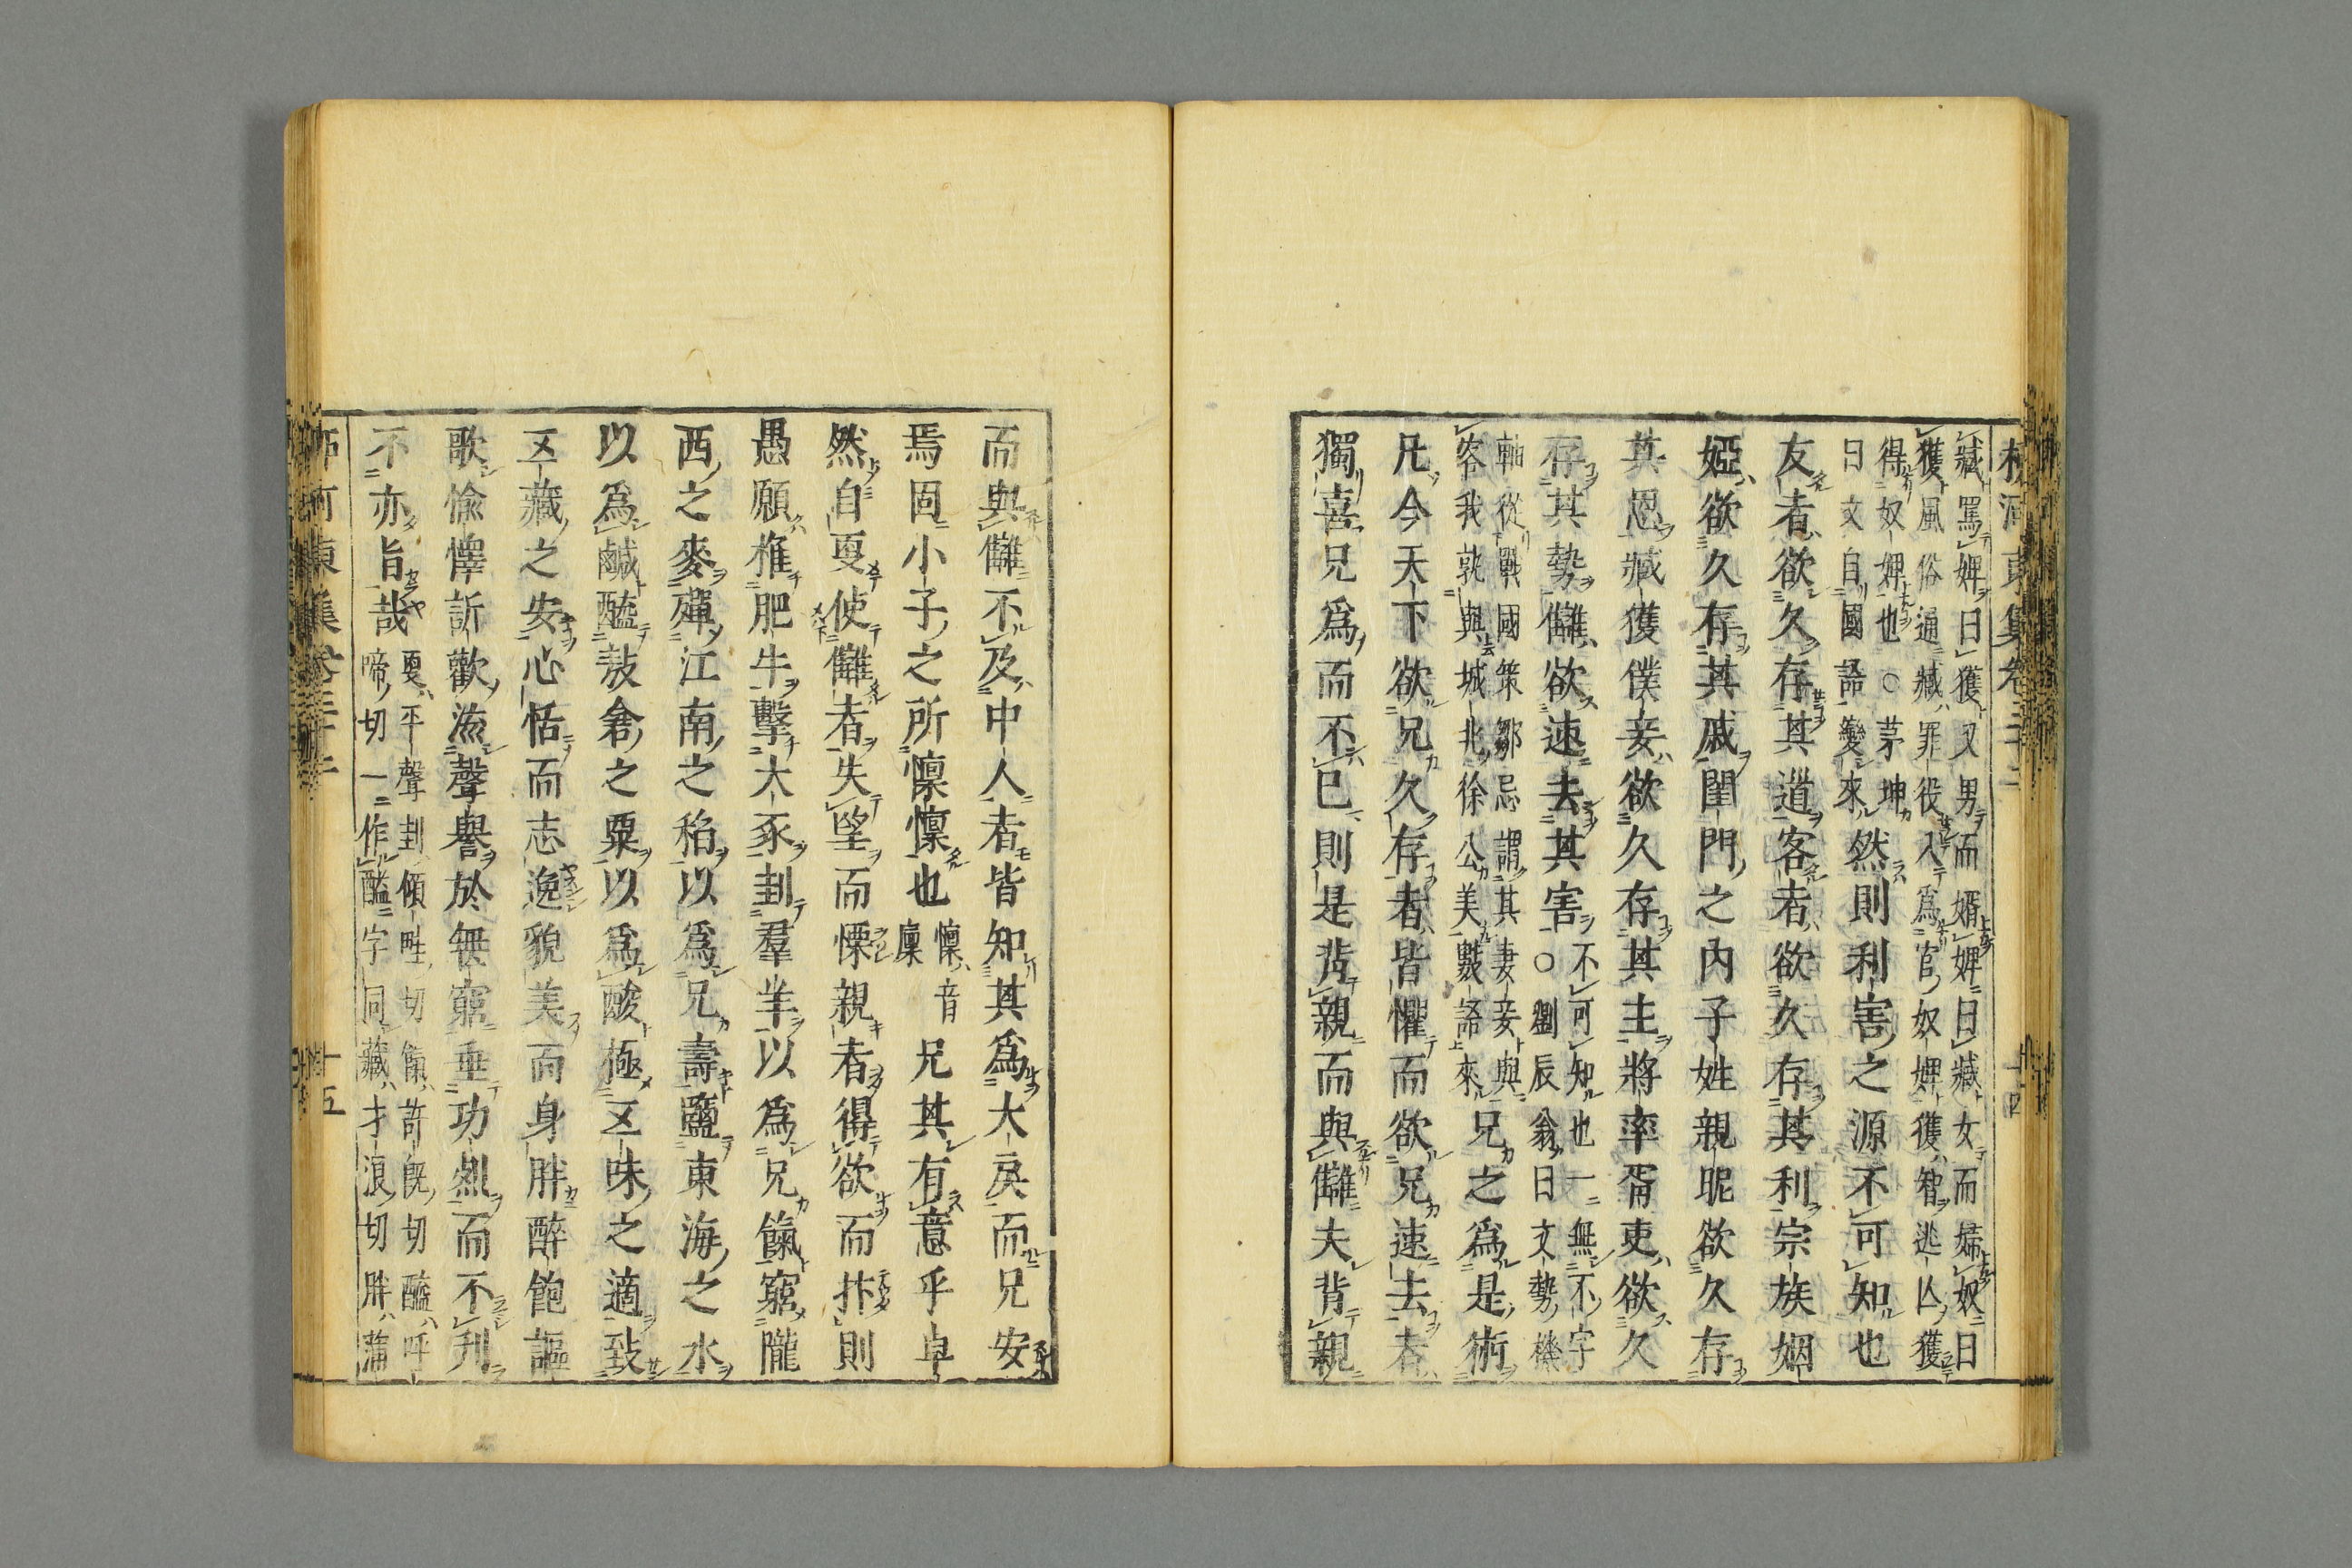 柳河東集卷三十二
十四
臧罵婢曰獲又男而婿婢曰臧女而婦奴曰
獲風俗通臧罪役入爲官奴婢獲智逃亾獲
得奴婢也○茅坤
曰文自國語變來然則利害之源不可知也
友者欲久存其道客者欲久存其利宗族姻
婭欲久存其戚閨門之内子姓親昵欲久存
其恩臧獲僕妾欲久存其主將率胥吏欲久
存其勢讎欲速去其害不可知也一無不字
○劉辰翁曰文勢機
軸從戰國策鄒忌謂其妻妾與
客我孰與城北徐公美數語來兄之爲是術
凡今天下欲兄久存者皆懼而欲兄速去者
獨喜兄爲而不已則是背親而與讎夫背親
而與讎不及中人者皆知其爲大戾而兄安
焉固小子之所懍懍也懍音
廩兄其有意乎卓
然自更使讎者失望而慄親者得欲而抃則
愚願椎肥牛擊大豕刲羣羊以爲兄餼窮隴
西之麥殫江南之稻以爲兄壽鹽東海之水
以爲鹹醯敖倉之粟以爲酸極五味之適致
五藏之安心恬而志逸貌美而身胖醉飽謳
歌愉懌訢歡流聲譽於無窮垂功烈而不刋
不亦旨哉更平聲刲傾畦切餼許旣切醯呼
啼切一作醯字同藏才浪切胖蒲
柳河東集卷三十二
十五